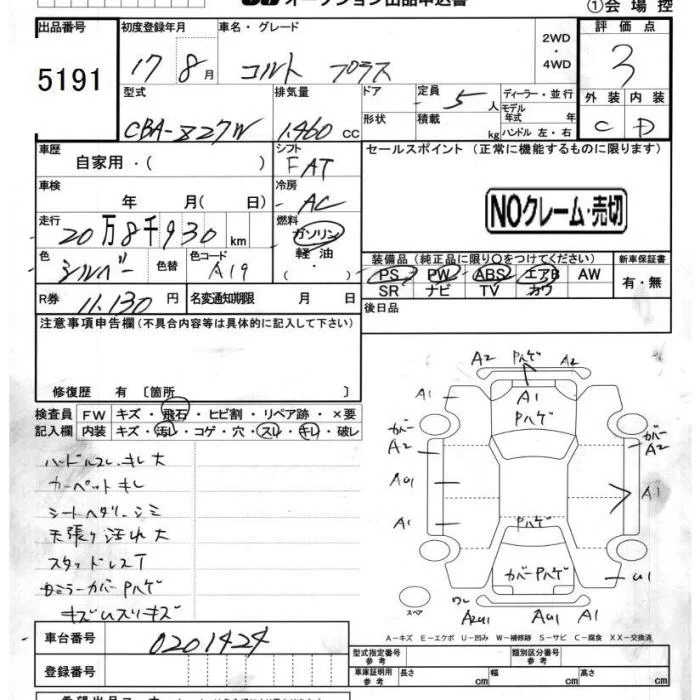 オークション出品申込書
①会場控
出品番号
5191
初度登録年月
17 8月
車名・グレード
コルト プラス
2WD
・
4WD
評価点
3
外装 内装
C D
型式
CBA-Z27W
排気量
1.460 cc
ドア
形状
定員
5人
積載
kg
ディーラー・並行
モデル年式 年
ハンドル 左・右
車歴
自家用・( )
シフト
FAT
セールスポイント (正常に機能するものに限ります)
車検
年 月( 日)
冷房
AC
NOクレーム・売切
走行
20万8千930km
燃料
ガソリン
軽油
・( )
色
シルバー
色替
色コード
A19
装備品(純正品に限り○をつけてください)
新車保証書
PS PW ABS エアB AW
SR ナビ TV カワ
有・無
R券
11.130円
名変通知期限 月 日
後日品
注意事項申告欄(不具合内容等は具体的に記入して下さい)
修復歴 有〔箇所 〕
検査員
記入欄
FW キズ・飛石・ヒビ割・リペア跡・×要
内装 キズ・汚レ・コゲ・穴・スレ・キレ・破レ
ハンドルスレ.キレ大
カーペットキレ
シートヘタリ.シミ
天張り汚れ大
スタッドレスT
ミラーカバーPハゲ
キズUスリキズ
A2 Pハゲ A2
A1 A1
Pハゲ
カバー
A2
カバー
A2
AU1
A1
A1
Pハゲ
カバーPハゲ
U1
スペア
ワレ
A2U1 AU1 A1
A-キズ E-エクボ U-凹み W-補修跡 S-サビ C-腐食 XX-交換済
車台番号
0201424
登録番号
型式指定番号
参考
類別区分番号
参考
車庫証明用
参考
長さ cm
幅 cm
高さ cm